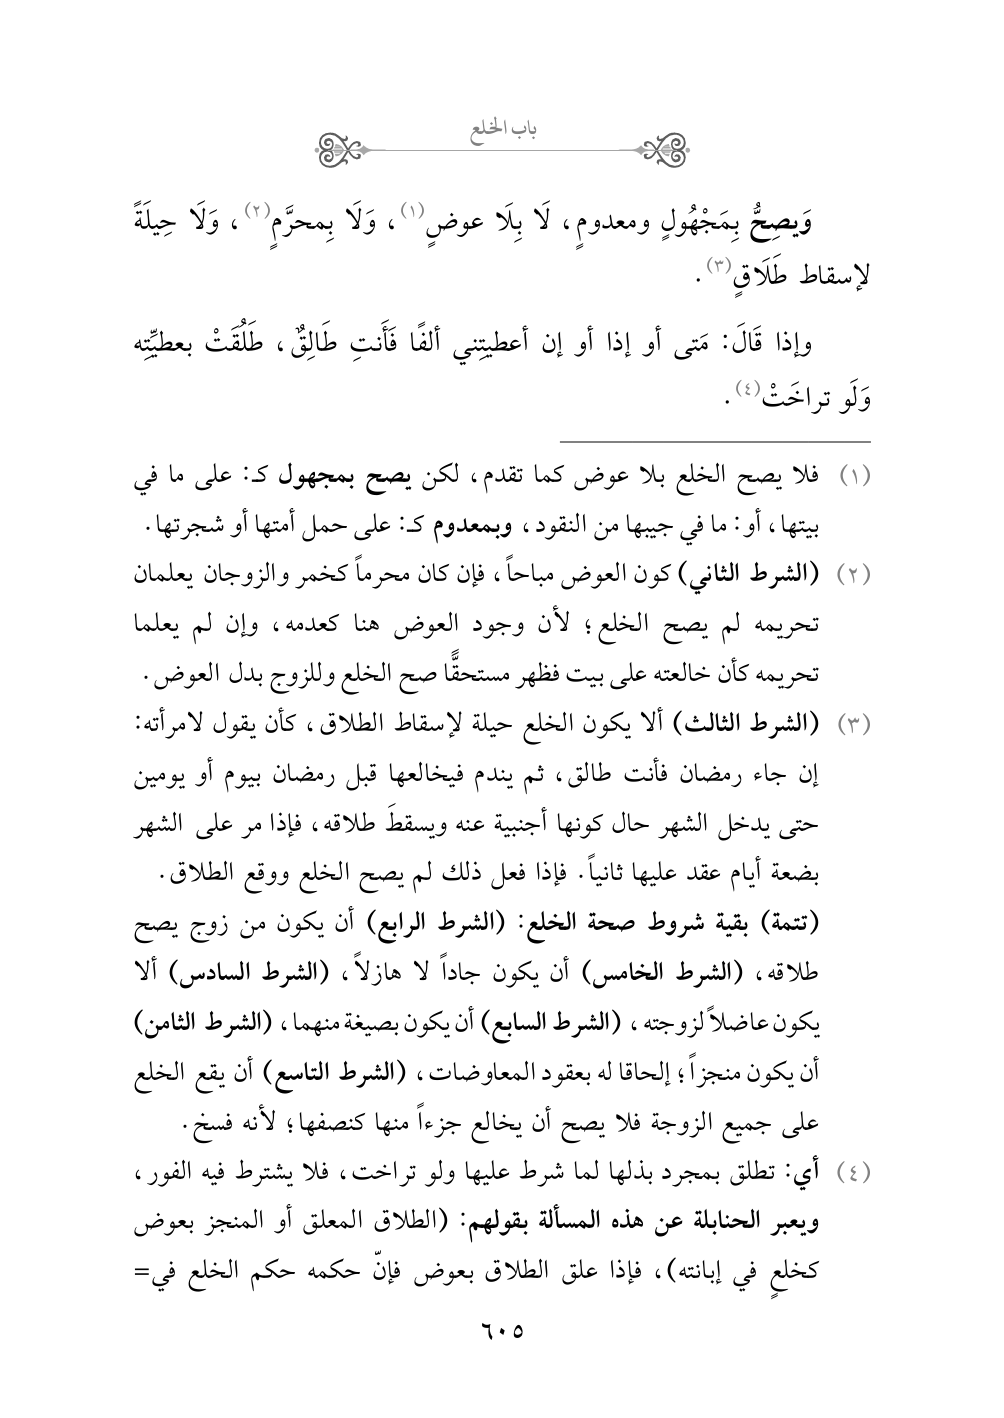 باب الخلع
وَيصِحُّ بِمَجْهُولٍ ومعدومٍ، لَا بِلَا عوضٍ(١)، وَلَا بِمحرَّمٍ(٢)، وَلَا حِيلَةً
لإسقاط طَلَاقٍ(٣).
وإذا قَالَ: مَتى أو إذا أو إن أعطيتِني ألفًا فَأَنتِ طَالِقٌ، طَلُقَتْ بعطيِّتِه
وَلَو تراخَتْ(٤).
(١) فلا يصح الخلع بلا عوض كما تقدم، لكن يصح بمجهول كـ: على ما في
بيتها، أو: ما في جيبها من النقود، وبمعدوم كـ: على حمل أمتها أو شجرتها.
(٢) (الشرط الثاني) كون العوض مباحاً، فإن كان محرماً كخمر والزوجان يعلمان
تحريمه لم يصح الخلع؛ لأن وجود العوض هنا كعدمه، وإن لم يعلما
تحريمه كأن خالعته على بيت فظهر مستحقًّا صح الخلع وللزوج بدل العوض.
(٣) (الشرط الثالث) ألا يكون الخلع حيلة لإسقاط الطلاق، كأن يقول لامرأته:
إن جاء رمضان فأنت طالق، ثم يندم فيخالعها قبل رمضان بيوم أو يومين
حتى يدخل الشهر حال كونها أجنبية عنه ويسقطَ طلاقه، فإذا مر على الشهر
بضعة أيام عقد عليها ثانياً. فإذا فعل ذلك لم يصح الخلع ووقع الطلاق.
(تتمة) بقية شروط صحة الخلع: (الشرط الرابع) أن يكون من زوج يصح
طلاقه، (الشرط الخامس) أن يكون جاداً لا هازلاً، (الشرط السادس) ألا
يكون عاضلاً لزوجته، (الشرط السابع) أن يكون بصيغة منهما، (الشرط الثامن)
أن يكون منجزاً؛ إلحاقا له بعقود المعاوضات، (الشرط التاسع) أن يقع الخلع
على جميع الزوجة فلا يصح أن يخالع جزءاً منها كنصفها؛ لأنه فسخ.
(٤) أي: تطلق بمجرد بذلها لما شرط عليها ولو تراخت، فلا يشترط فيه الفور،
ويعبر الحنابلة عن هذه المسألة بقولهم: (الطلاق المعلق أو المنجز بعوض
كخلعٍ في إبانته)، فإذا علق الطلاق بعوض فإنّ حكمه حكم الخلع في=
٦٠٥